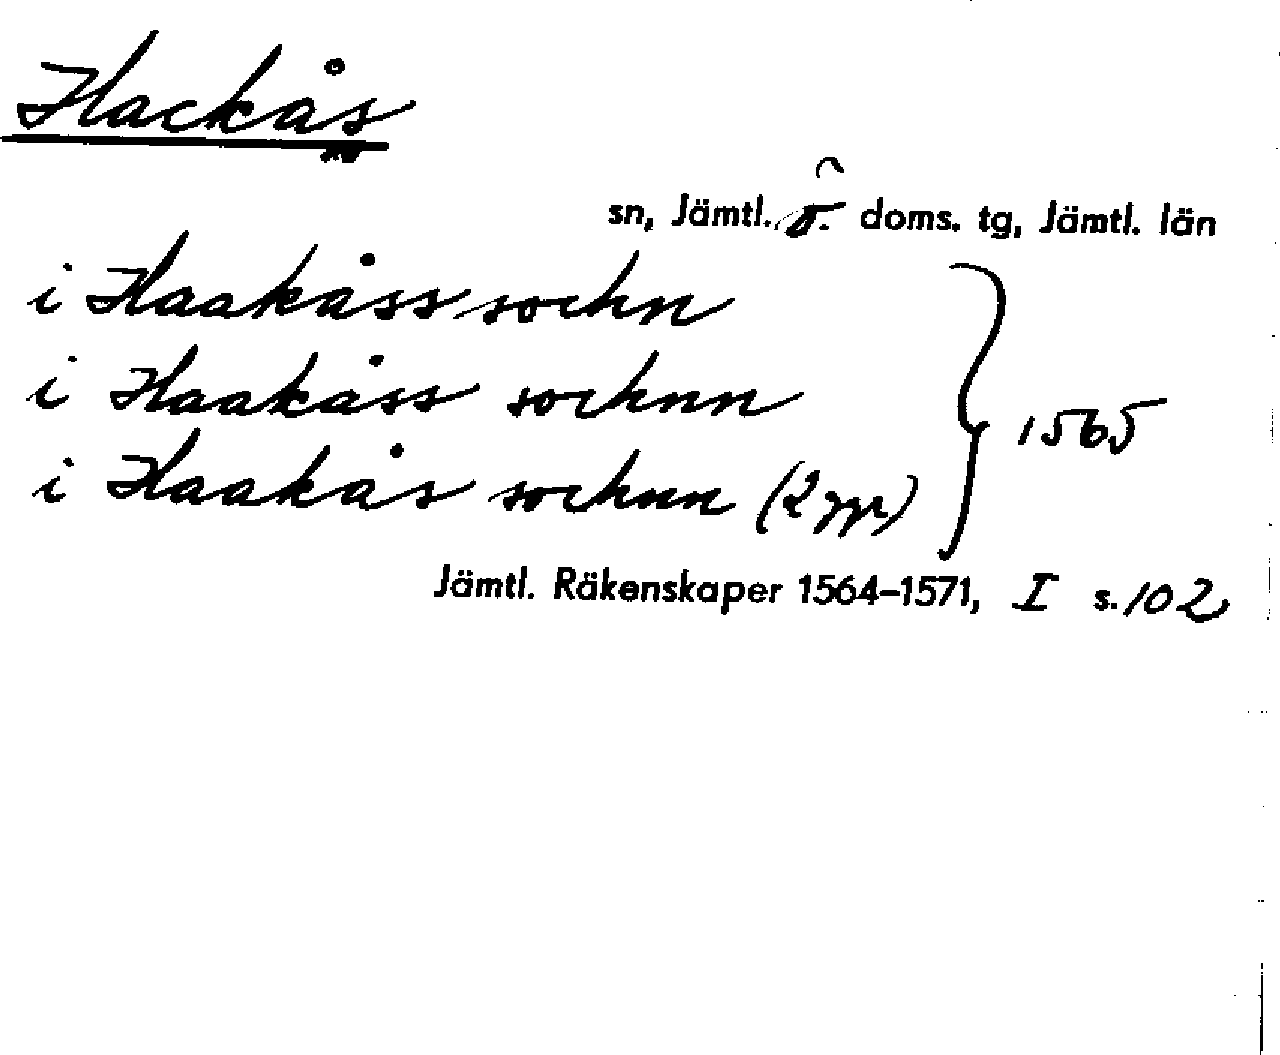 Hackås
sn, Jämtl. ö. doms. tg, Jämtl. län
i Haakåss sochn
i Haakåss sochnn
i Haakås sochnn (2 ggr) } 1565
Jämtl. Räkenskaper 1564–1571, I s. 102